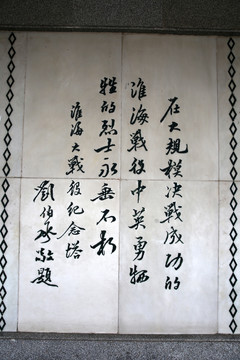 在大規模决戰成功的
淮海戰役中英勇牺
牲的烈士永垂不朽
淮海大戰役紀念塔
劉伯承敬題